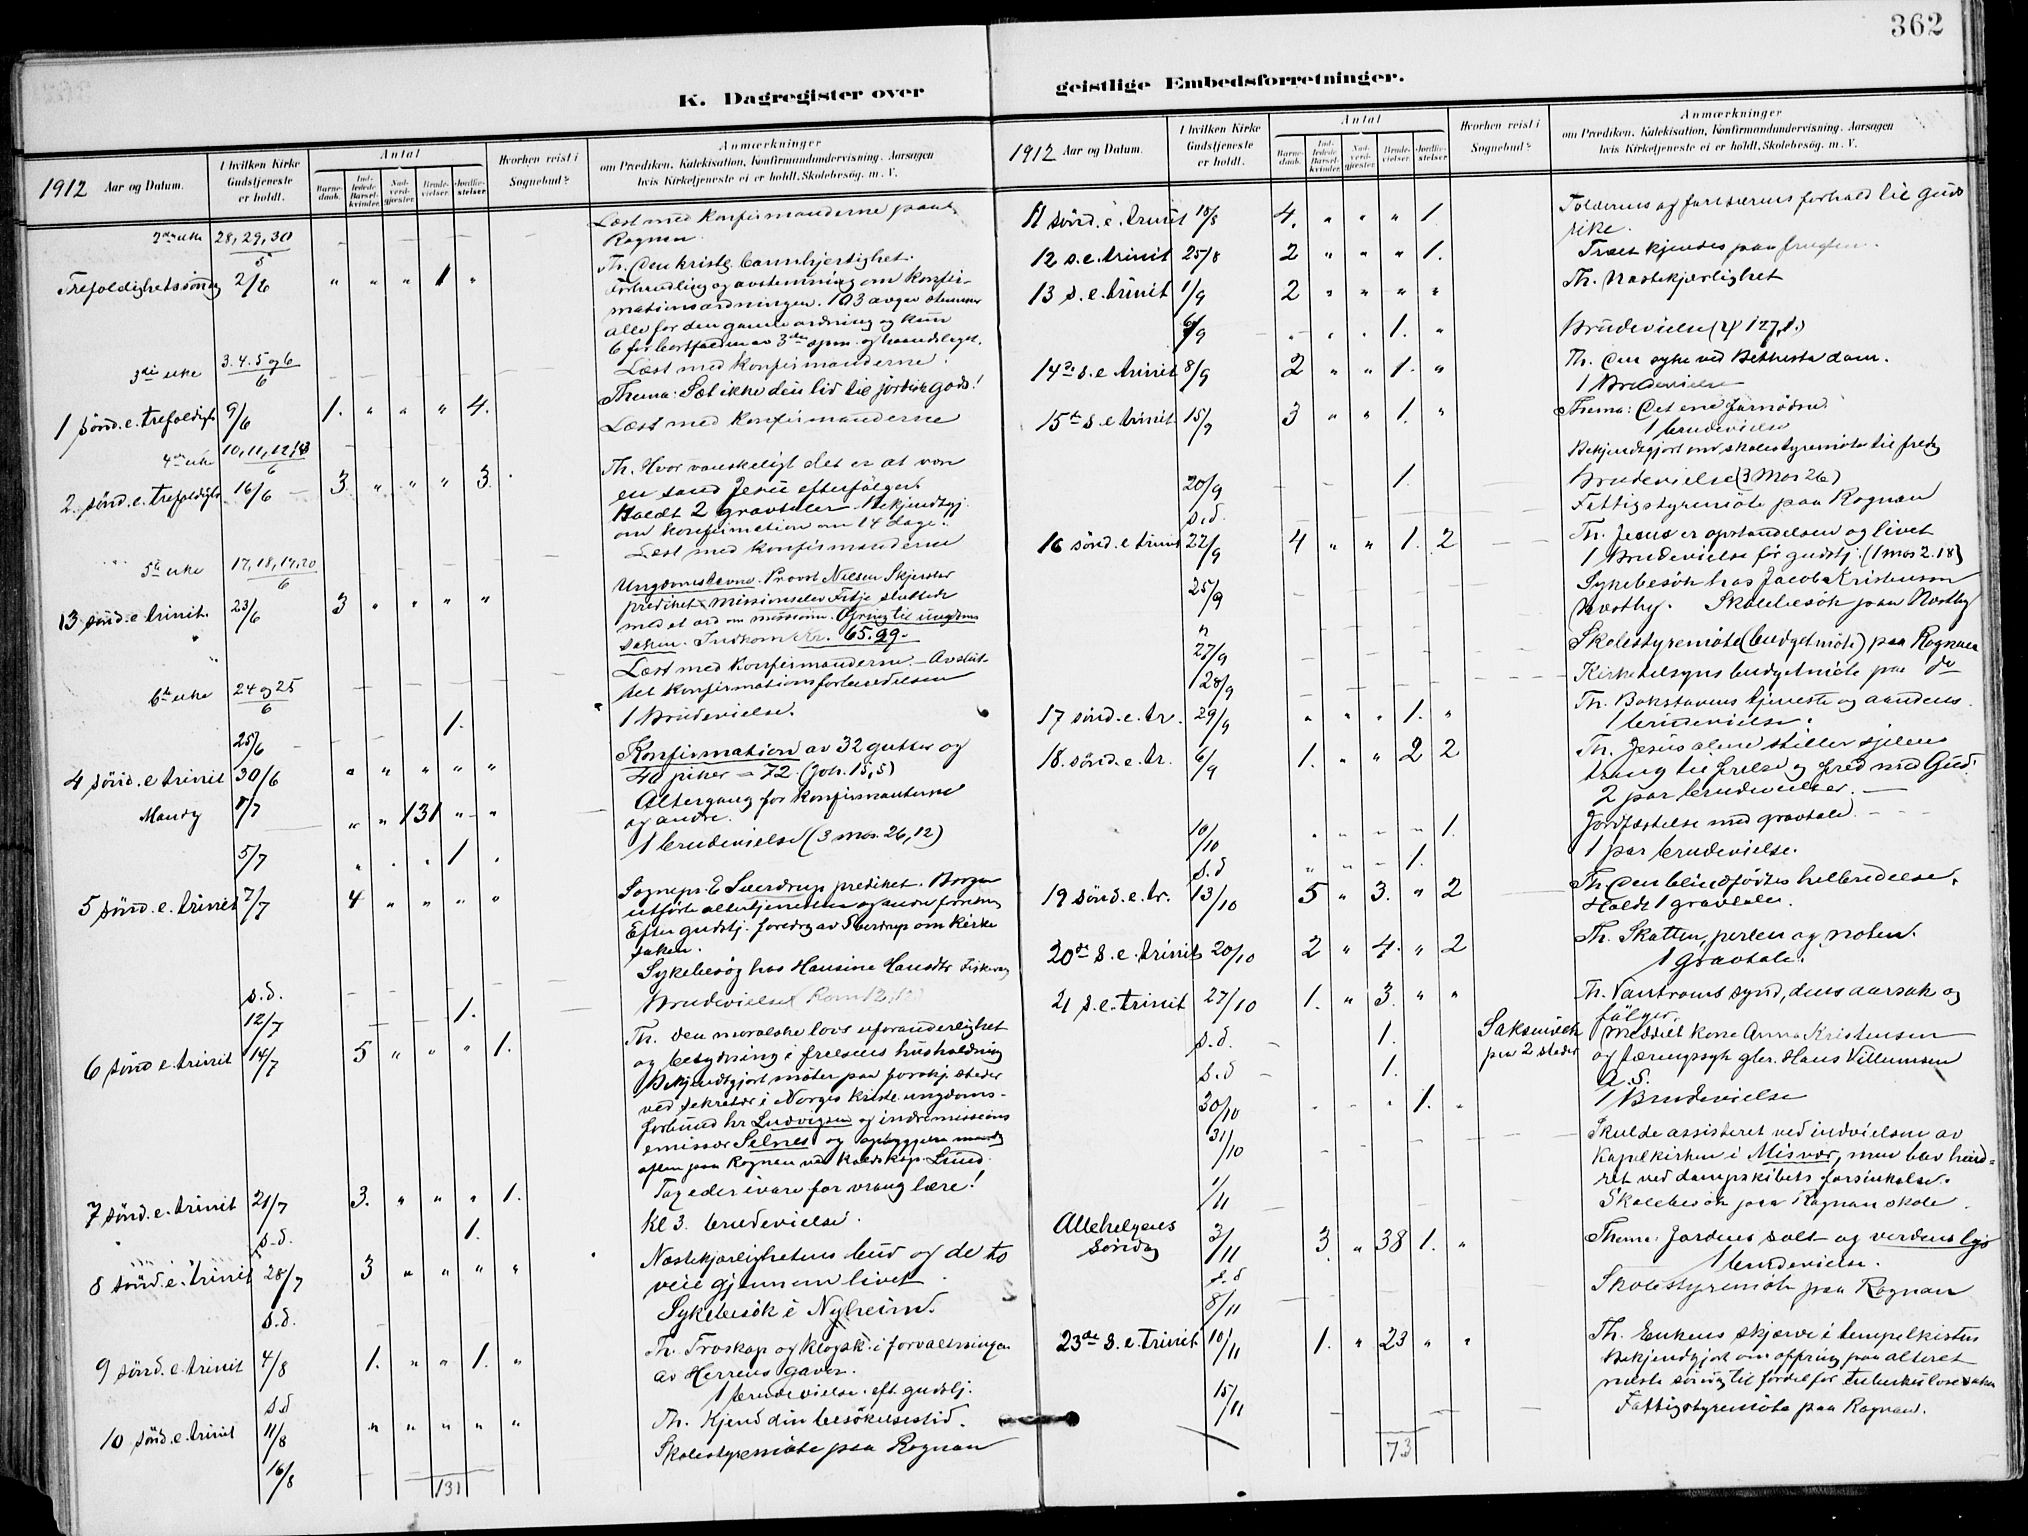 362
K. Dagregister over
geistlige Embedsforretninger.
1912 Aar og Datum.
I hvilken Kirke Gudstjeneste er holdt.
Antal
Barnedaab.
Indledede Barselkvinder.
Nadverdgjester.
Brudevielser.
Jordfæstelser.
Hvorhen reist i Sognebud?
Anmærkninger
om Prædiken, Katekisation, Konfirmandundervisning, Aarsagen
hvis Kirketjeneste ei er holdt, Skolebesøg, m. V.
Læst med konfirmanderne paa
2den uke 28, 29, 30/5 Rognan.
Trefoldighetssöndag 2/6 " " " 1 " Th. Den kristg. barmhjertighet.
Forhandling og avstemning om konfir-
mationsordningen. 103 avgav stemmer
alle for den gamle ordning og kun
6 for bortfallen av 3die spm. og haandslaget.
3die uke 3. 4. 5 og 6/6 Læst med konfirmanderne.
1 sönd. e. trefoldigh 9/6 1. " " " 4. Thema: Sæt ikke din lid til jordisk gods!
4de uke 10, 11, 12, 13/6 Læst med konfirmanderne
2. sönd. e. trefoldigh 16/6 3 " " " 3. Th. Hvor vanskeligt det er at være
en sand Jesu efterfölger.
Holdt 2 gravtaler. Bekjendtgj.
om konfirmation om 14 dage.
5te uke 17, 18, 19, 20/6 Læst med konfirmanderne
13 sönd. e. trinit. 23/6 3 " " " " Ungdomsstevne. Provst Nielsen Skjerstad
prediket. Missionselev Fitje sluttede
med et ord om missionen. Ofring til ungdoms
saken. Indkom kr. 65.99.
6te uke 24 og 25/6 Læst med konfirmanderne. Avslut-
tet konfirmationsforberedelsen
25/6 1. 1 Brudevielse.
4 sönd. e trinit 30/6 " " " " " Konfirmation av 32 gutter og
40 piker = 72. (Joh. 15,5)
Mandg 1/7 " " 131 " " Altergang for konfirmanterne
og andre.
5/7 " " " 1 " 1 brudevielse (3 mos. 26, 12)
5 sönd. e. trinit 7/7 4 " " " " Sogneps. E Sverdrup prediket. Borgen
utförte altertjenesten og andre forretng
Efter gudstj. foredrag av Sverdrup om kirke
saken.
s.d. Sykebesög hos Hansine Hansdtr Fiskvaag
12/7 1. Brudevielse Rom 12, 12
6 sönd e. trinit 14/7 5 " " " 1. Th. Den moralske lovs uforanderlighet
og betydning i frelsens husholdning
Bekjendtgjort möter paa forskj. steder
ved sekretær i Norges kristl. ungdoms-
forbund hr Ludvigsen og indremissions
emissær Selnes og opbyggelse mandg
aften paa Rognan ved Lund.
7 sönd. e. trinit 21/7 3. " " " 1. Tag eder ivare for vrang lære!
s.d. 1. Kl 3. brudevielse.
8 sönd. e. trinit 28/7 3 " " " " Næstekjærlighetens bud og de to
veie gjennem livet
s.d. Sykebesök i Nyheim.
9 sönd. e. trinit 4/8 1. " " 1. " Th. Troskap og klogsk. i forvaltningen
av Herrens gaver.
s.d 1 brudevielse. eft. gudstj.
10 sönd. e. trinit 11/8 " " " " " Th. Kjend din besökelsestid.
16/8 Skolestyremöte paa Rognan
131
1912 Aar og Datum.
I hvilken Kirke Gudstjeneste er holdt.
Antal
Barnedaab.
Indledede Barselkvinder.
Nadverdgjester.
Brudevielser.
Jordfæstelser.
Hvorhen reist i Sognebud?
Anmærkninger
om Prædiken, Katekisation, Konfirmandundervisning, Aarsagen
hvis Kirketjeneste ei er holdt, Skolebesøg, m. V.
11 sönd. e. trinit 18/8 4. " " " 1. Tolderens og farisæerens forhold til Guds
rike.
12 s. e. trinit 25/8 2 " " " 1. Træet kjendes paa frugten.
13 s. e. trinit 1/9 2 " " " " Th. Næstekjærlighet
6/9 1. " Brudevielse (ψ 127,1.)
14de s. e trinit 8/9 2 " " 1. " Th. Den syke ved Bethesta dam.
1 Brudevielse
15te s. e trinit 15/9 3 " " 1. " Thema: Det ene fornödne.
1 brudevielse
Bekjendtgjort om skolestyremöte til fredg
20/9 1. Brudevielse (3 Mos 26)
s.d. Fattigstyremöte paa Rognan
16 sönd. e trinit 22/9 4 " " 1. 2 Th. Jesus er opstandelsen og livet
1 Brudevielse för gudstj. (1 mos 2.18)
25/9 Sykebesök hos Jacob Kristensen
Næstby. Skolebesök paa Næstby
27/9 Skolestyremöte (budgetmöte) paa Rognan
28/9 Kirketilsyns budgetmöte paa do
17 sönd. e. tr. 29/9 " " " 1. " Th. Bokstavens tjeneste og aandens.
1 brudevielse.
18. sönd. e. tr. 6/9 1. " " 2 2 Th. Jesus alene stiller sjelens
trang til frelse og fred med Gud.
2 par brudevielser.
10/10 " " " " 1. Jordfæstelse med gravtale.
s.d " " " 1. 1 par brudevielse.
19 sönd. e. tr. 13/10 5 " 3. " 2 Th. Den blindfödtes helbredelse.
Holdt 1 gravtale.
20de s. e. trinit 20/10 2 " 4. " 2 Th. Skatten, perlen og noten.
1 gravtale.
21 s. e. trinit 27/10 1. " 3. " " Th. Vantroens synd, dens aarsak og
fölger.
s.d. 1. Saksenvik paa 2 steder Meddelt kone Anna Kristensen
s.d 1. og tæringssyk gbr. Hans Villumsen
2. S.
30/10 " " " 1. " 1 Brudevielse
31/10 Skulde assisteret ved indvielsen av
Kapelkirken i Misvær, men blev hind-
ret ved dampskibets forsinkelse.
1/11 Skolebesök paa Rognan skole.
Allehelgens söndag 3/11 3 " 38 1. " Thema: Jordens salt og verdens lys
1 brudevielse.
s.d
8/11 Skolestyremöte paa Rognan
23de s. e. trinit 10/11 1. " 23 " " Th. Enkens skjærv i tempelkisten
Bekjendtgjort om ofring paa alteret
næste söndg til fordel for tuberkulosesaken
15/11 Fattigstyremöte paa Rognan.
73